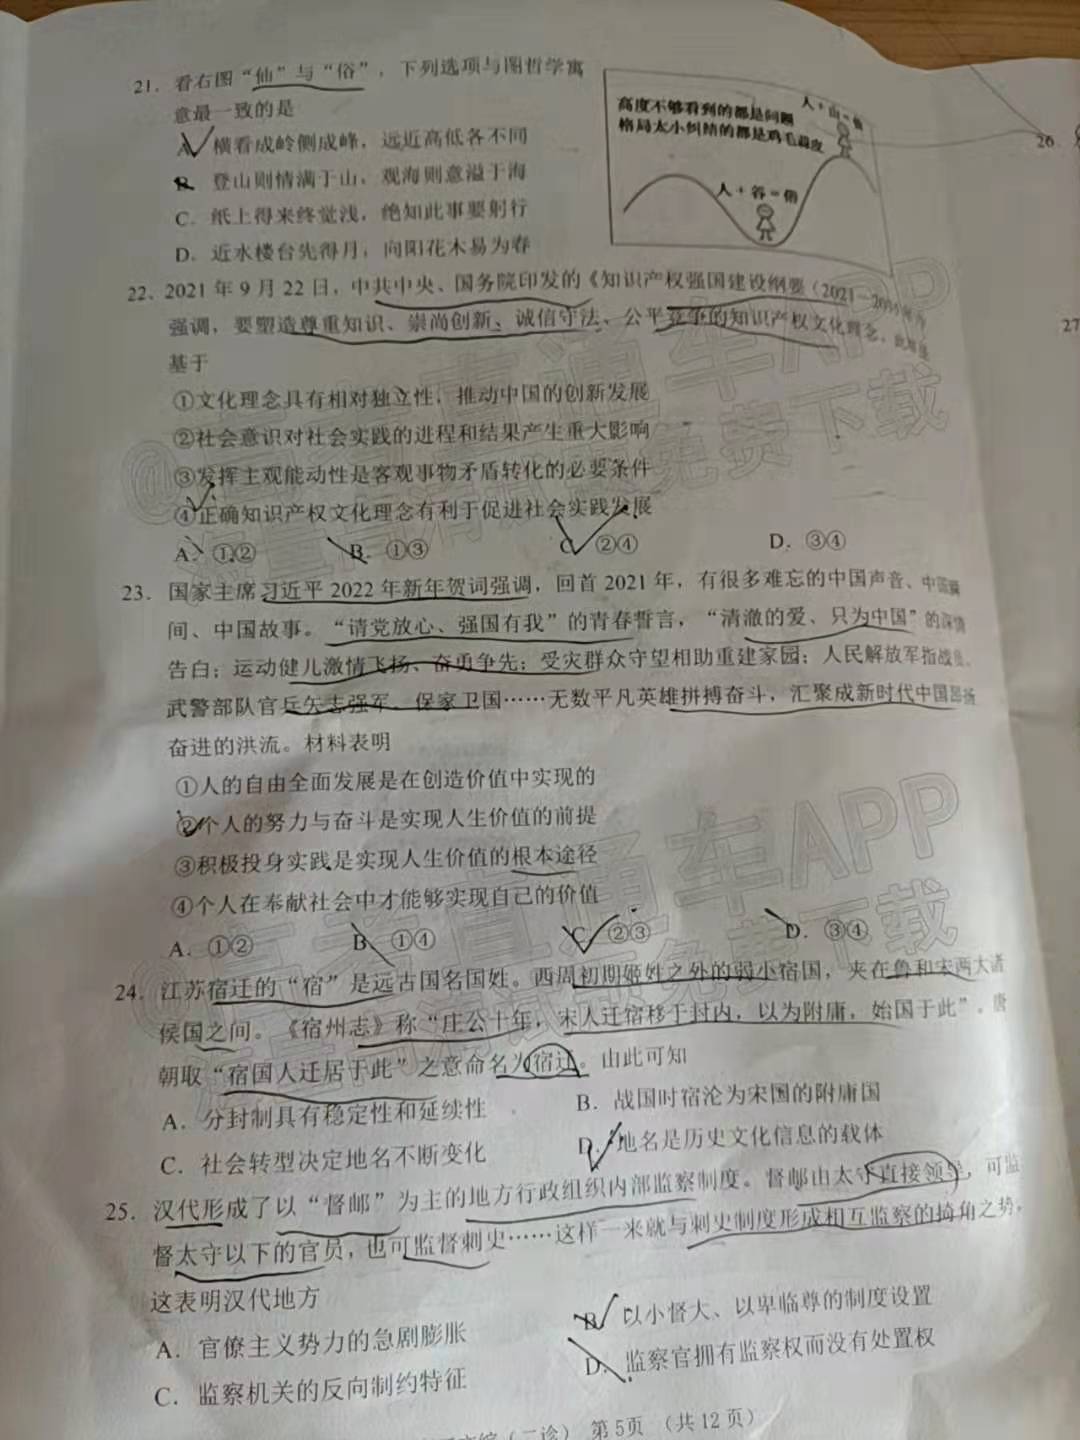 21．看右图“仙”与“俗”，下列选项与图哲学寓
意最一致的是
A．横看成岭侧成峰，远近高低各不同
B．登山则情满于山，观海则意溢于海
C．纸上得来终觉浅，绝知此事要躬行
D．近水楼台先得月，向阳花木易为春
高度不够看到的都是问题
格局太小纠结的都是鸡毛蒜皮
人+山=仙
人+谷=俗
22．2021年9月22日，中共中央、国务院印发的《知识产权强国建设纲要（2021—
强调，要塑造尊重知识、崇尚创新、诚信守法、公平竞争的知识产权文化理念。
基于
①文化理念具有相对独立性，推动中国的创新发展
②社会意识对社会实践的进程和结果产生重大影响
③发挥主观能动性是客观事物矛盾转化的必要条件
④正确知识产权文化理念有利于促进社会实践发展
A．①② B．①③ C．②④ D．③④
23．国家主席习近平2022年新年贺词强调，回首2021年，有很多难忘的中国声音、中国瞬
间、中国故事。“请党放心、强国有我”的青春誓言，“清澈的爱、只为中国”的深情
告白；运动健儿激情飞扬、奋勇争先；受灾群众守望相助重建家园；人民解放军指战员、
武警部队官兵矢志强军、保家卫国……无数平凡英雄拼搏奋斗，汇聚成新时代中国昂扬
奋进的洪流。材料表明
①人的自由全面发展是在创造价值中实现的
②个人的努力与奋斗是实现人生价值的前提
③积极投身实践是实现人生价值的根本途径
④个人在奉献社会中才能够实现自己的价值
A．①② B．①④ C．②③ D．③④
24．江苏宿迁的“宿”是远古国名国姓。西周初期姬姓之外的弱小宿国，夹在鲁和宋两大诸
侯国之间。《宿州志》称“庄公十年，宋人迁宿移于封内，以为附庸，始国于此”。唐
朝取“宿国人迁居于此”之意命名为宿迁。由此可知
A．分封制具有稳定性和延续性 B．战国时宿沦为宋国的附庸国
C．社会转型决定地名不断变化 D．地名是历史文化信息的载体
25．汉代形成了以“督邮”为主的地方行政组织内部监察制度。督邮由太守直接领导，可监
督太守以下的官员，也可监督刺史……这样一来就与刺史制度形成相互监察的掎角之势，
这表明汉代地方
A．官僚主义势力的急剧膨胀 B．以小督大、以卑临尊的制度设置
C．监察机关的反向制约特征 D．监察官拥有监察权而没有处置权
（二诊） 第5页 （共12页）
26
27
@高考直通车APP
海量高清试题免费下载
@高考直通车APP
海量高清试题免费下载